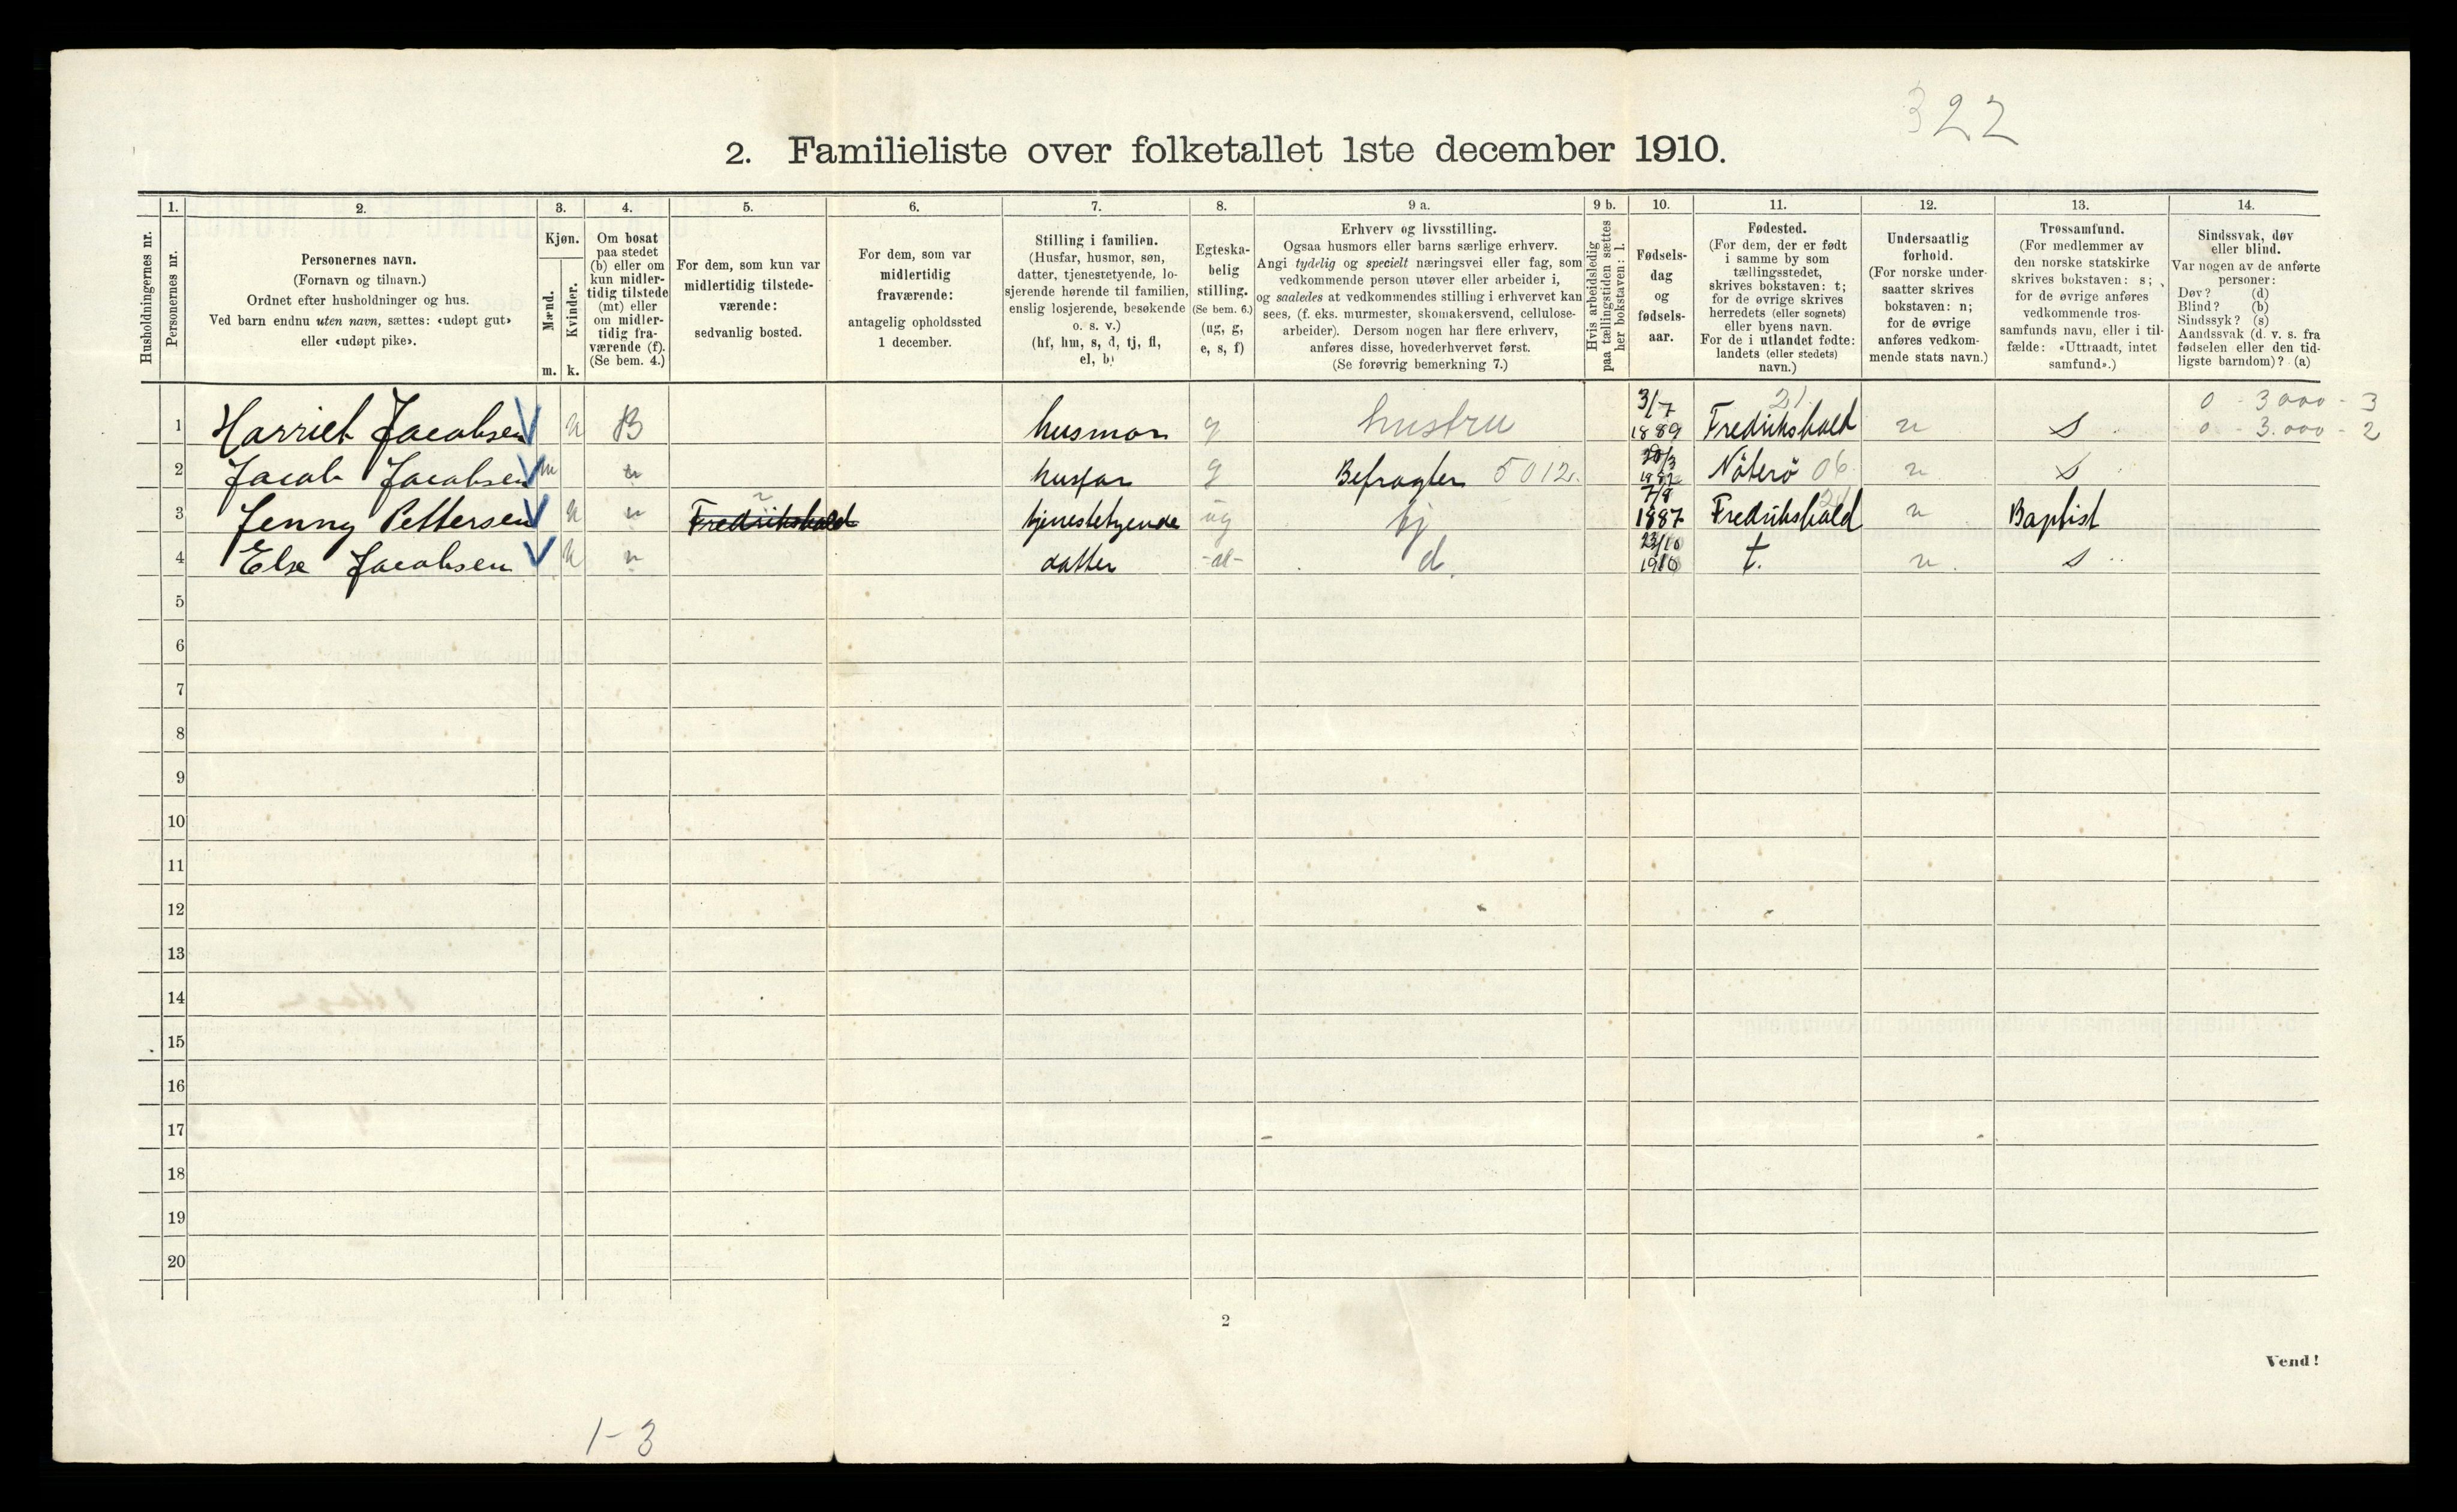 322
2. Familieliste over folketallet 1ste december 1910.
Husholdningernes nr.
1.
Personernes nr.
2.
Personernes navn.
(Fornavn og tilnavn.)
Ordnet efter husholdninger og hus.
Ved barn endnu uten navn, sættes: «udøpt gut»
eller «udøpt pike».
3.
Kjøn.
Mænd.
m.
Kvinder.
k.
4.
Om bosat
paa stedet
(b) eller om
kun midler-
tidig tilstede
(mt) eller
om midler-
tidig fra-
værende (f).
(Se bem. 4.)
5.
For dem, som kun var
midlertidig tilstede-
værende:
sedvanlig bosted.
6.
For dem, som var
midlertidig
fraværende:
antagelig opholdssted
1 december.
7.
Stilling i familien.
(Husfar, husmor, søn,
datter, tjenestetyende, lo-
sjerende hørende til familien,
enslig losjerende, besøkende
o. s. v.)
(hf, hm, s, d, tj, fl,
el, b)
8.
Egteska-
belig
stilling.
(Se bem. 6.)
(ug, g,
e, s, f)
9 a.
Erhverv og livsstilling.
Ogsaa husmors eller barns særlige erhverv.
Angi tydelig og specielt næringsvei eller fag, som
vedkommende person utøver eller arbeider i,
og saaledes at vedkommendes stilling i erhvervet kan
sees, (f. eks. murmester, skomakersvend, cellulose-
arbeider). Dersom nogen har flere erhverv,
anføres disse, hovederhvervet først.
(Se forøvrig bemerkning 7.)
9 b.
Hvis arbeidsledig
paa tællingstiden sættes
her bokstaven: l.
10.
Fødsels-
dag
og
fødsels-
aar.
11.
Fødested.
(For dem, der er født
i samme by som
tællingsstedet,
skrives bokstaven: t;
for de øvrige skrives
herredets (eller sognets)
eller byens navn.
For de i utlandet fødte:
landets (eller stedets)
navn.)
12.
Undersaatlig
forhold.
(For norske under-
saatter skrives
bokstaven: n;
for de øvrige
anføres vedkom-
mende stats navn.)
13.
Trossamfund.
(For medlemmer av
den norske statskirke
skrives bokstaven: s;
for de øvrige anføres
vedkommende tros-
samfunds navn, eller i til-
fælde: «Uttraadt, intet
samfund».)
14.
Sindssvak, døv
eller blind.
Var nogen av de anførte
personer:
Døv? (d)
Blind? (b)
Sindssyk? (s)
Aandssvak (d. v. s. fra
fødselen eller den tid-
ligste barndom)? (a)
1 Harriet Jacobsen k B husmor g hustru 3/7 1889 21 Fredrikshald n s 0 - 3000 - 3
0 - 3.000 - 2
2 Jacob Jacobsen m " husfar g Befragter 5012. Nöterö 06 n s
3 Jenny Pettersen k " Fredrikshald tjenestetyende ug tj 7/8 1887 Fredrikshald 21 n Baptist
4 Else Jacobsen k " datter d. 23/10 1910 t. n s
5
6
7
8
9
10
11
12
13
14
15
16
17
18
19
20
2
Vend!
1-3